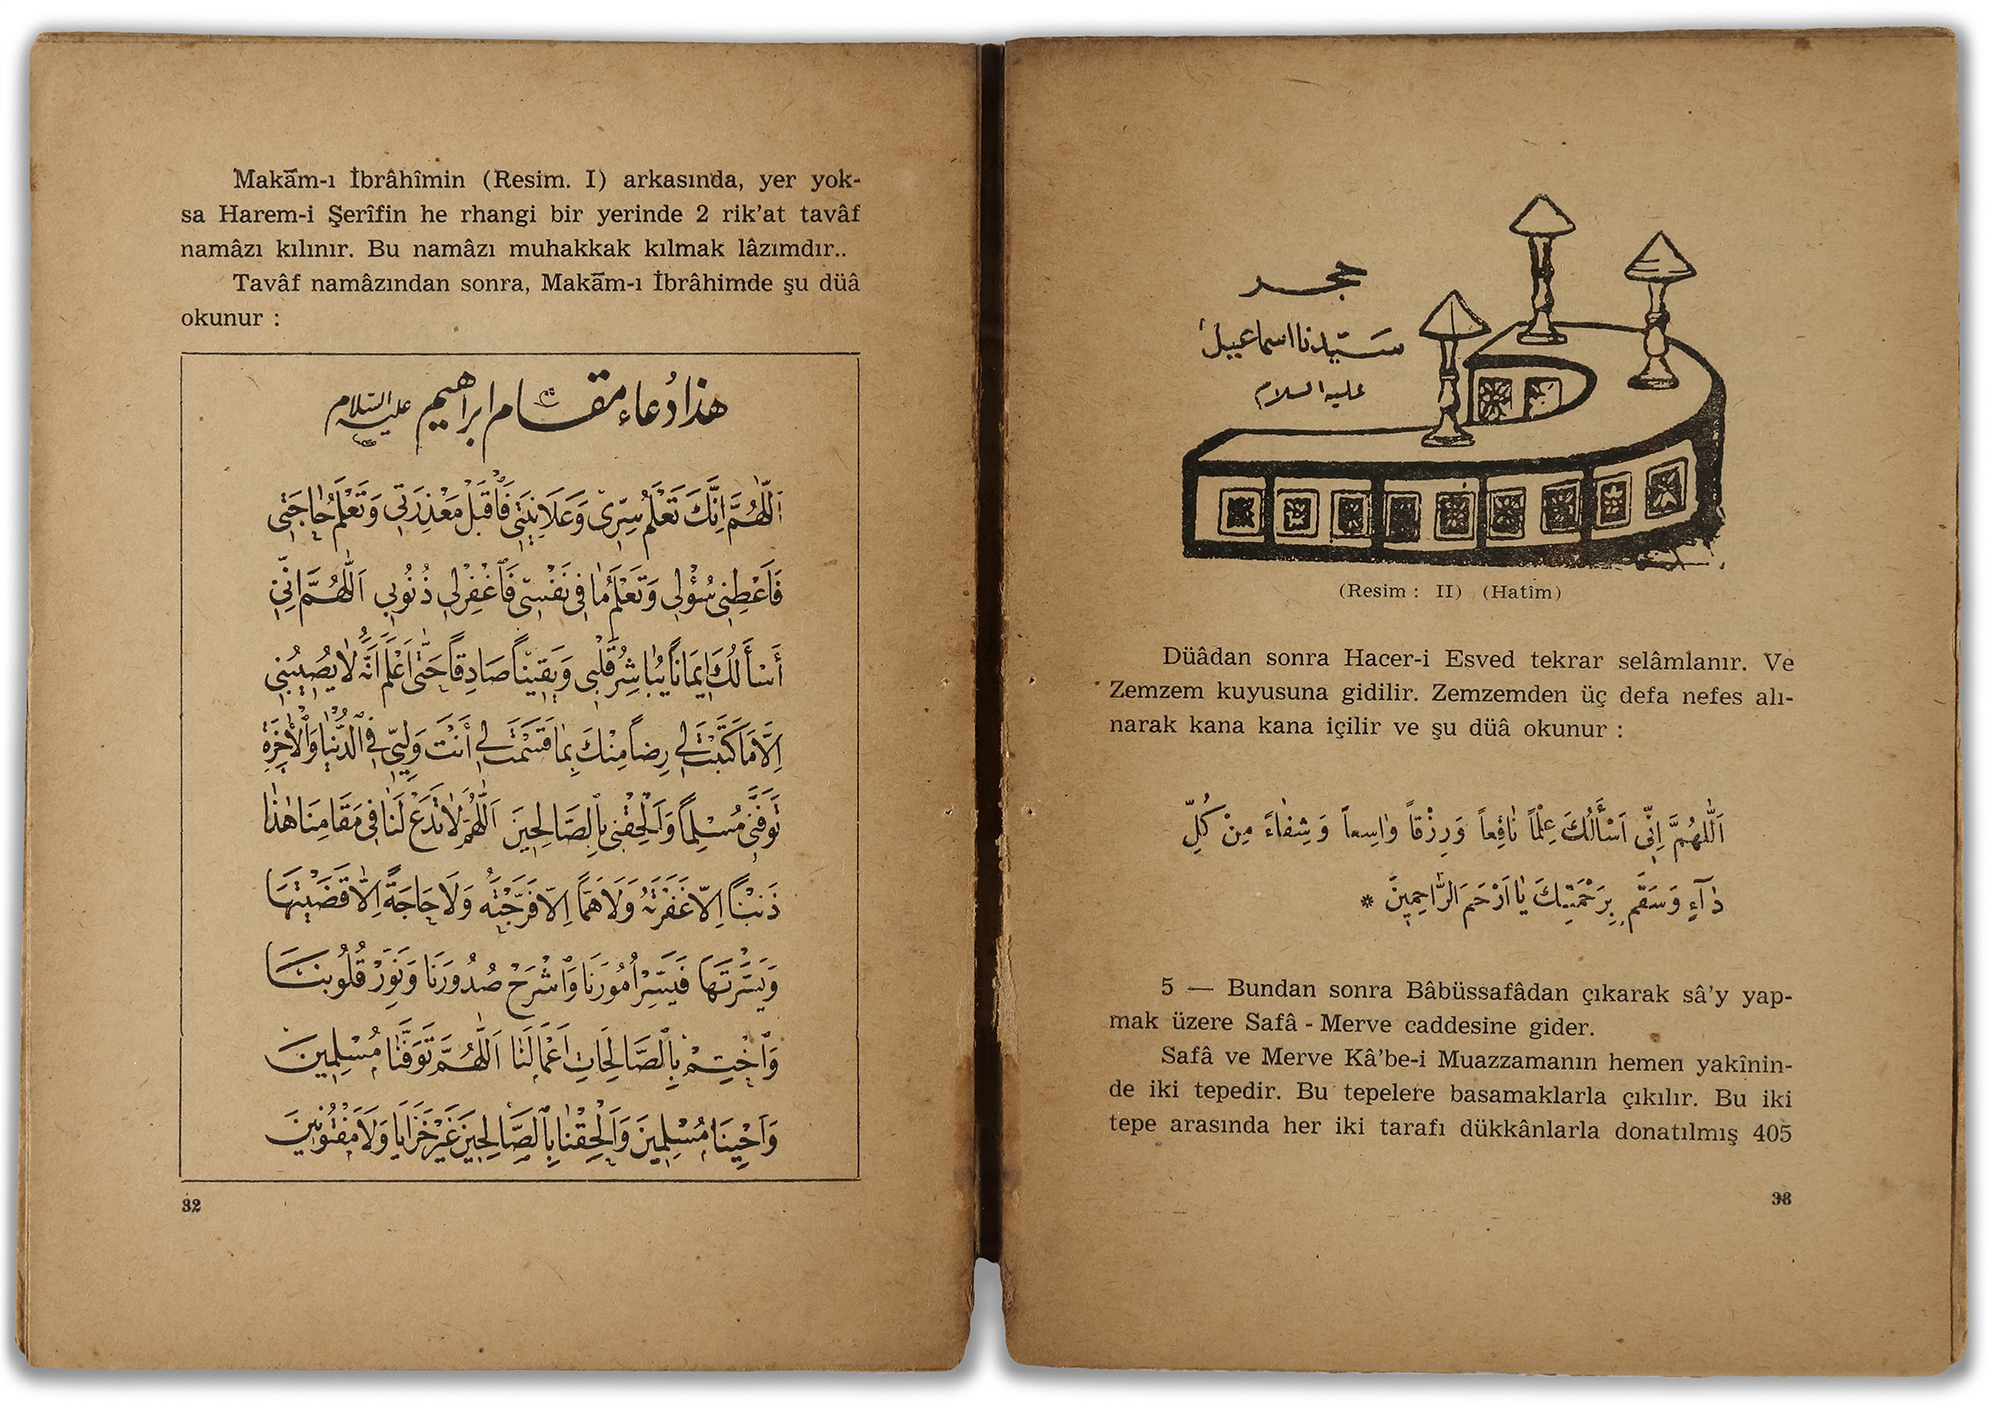 Makām-ı İbrâhîmin (Resim. I) arkasında, yer yok-
sa Harem-i Şerîfin he rhangi bir yerinde 2 rik'at tavâf
namâzı kılınır. Bu namâzı muhakkak kılmak lâzımdır..
Tavâf namâzından sonra, Makām-ı İbrâhimde şu düâ
okunur :
هذا دُعاء مقام ابراهيم عليه السّلام
اَللّٰهُمَّ اِنَّكَ تَعْلَمُ سِرِّى وَعَلَانِيَتِى فَاقْبَلْ مَعْذِرَتِى وَتَعْلَمُ حَاجَتِى
فَاَعْطِنِى سُؤْلِى وَتَعْلَمُ مَا فِى نَفْسِى فَاغْفِرْلِى ذُنُوبِى اَللّٰهُمَّ اِنِّى
أَسْأَلُكَ اِيمَانًا يُبَاشِرُ قَلْبِى وَيَقِينًا صَادِقًا حَتّٰى اَعْلَمَ اَنَّهُ لَا يُصِيبُنِى
اِلَّا مَا كَتَبْتَ لِى رِضاً مِنْكَ بِمَا قَسَمْتَ لِى أَنْتَ وَلِيِّى فِى الدُّنْيَا وَالْاٰخِرَةِ
تَوَفَّنِى مُسْلِماً وَاَلْحِقْنِى بِالصَّالِحِينَ اَللّٰهُمَّ لَا تَدَعْ لَنَا فِى مَقَامِنَا هٰذَا
ذَنْبًا اِلَّا غَفَرْتَهُ وَلَا هَمًّا اِلَّا فَرَّجْتَهُ وَلَا حَاجَةً اِلَّا قَضَيْتَهَا
وَيَسَّرْتَهَا فَيَسِّرْ اُمُورَنَا وَاشْرَحْ صُدُورَنَا وَنَوِّرْ قُلُوبَنَا
وَاخْتِمْ بِالصَّالِحَاتِ اَعْمَالَنَا اَللّٰهُمَّ تَوَفَّنَا مُسْلِمِينَ
وَاَحْيِنَا مُسْلِمِينَ وَاَلْحِقْنَا بِالصَّالِحِينَ غَيْرَ خَزَايَا وَلَا مَفْتُونِينَ
32
حجر
سيّدنا اسماعيل
عليه السلام
(Resim : II) (Hatim)
Düâdan sonra Hacer-i Esved tekrar selâmlanır. Ve
Zemzem kuyusuna gidilir. Zemzemden üç defa nefes alı-
narak kana kana içilir ve şu düâ okunur :
اَللّٰهُمَّ اِنِّى اَسْأَلُكَ عِلْمًا نَافِعاً وَرِزْقاً وَاسِعاً وَشِفَاءً مِنْ كُلِّ
دَآءٍ وَسَقَمٍ بِرَحْمَتِكَ يَا اَرْحَمَ الرَّاحِمِينَ *
5 — Bundan sonra Bâbüssafâdan çıkarak sâ'y yap-
mak üzere Safâ - Merve caddesine gider.
Safâ ve Merve Kâ'be-i Muazzamanın hemen yakînin-
de iki tepedir. Bu tepelere basamaklarla çıkılır. Bu iki
tepe arasında her iki tarafı dükkânlarla donatılmış 405
33